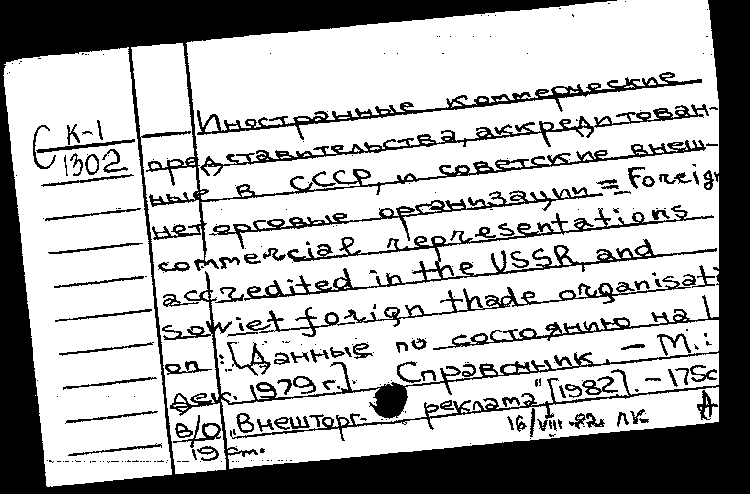 С К-1
1302
Иностранные коммерческие
представительства, аккредитован-
ные в СССР, и советские внеш-
неторговые организации = Foreign
commercial representations
accredited in the USSR, and
Sowiet forign thade organisati
on : [Данные по состоянию на 1
дек. 1979 г.]. Справочник. – М.:
В/О „Внешторг- реклама", [1982]. – 175с
19 см.
16/VIII-82. ЛК
А